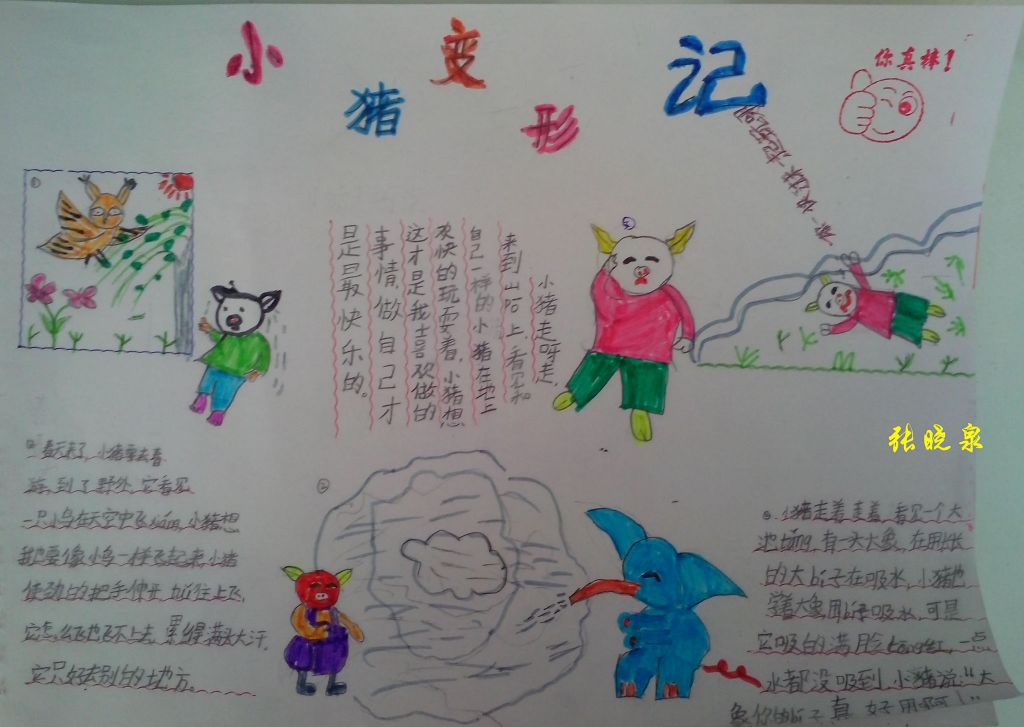 小猪变形记
你真棒！
春天来了，小猪要去春
游，到了野外，它看见
一只小鸟在天空中飞xiáng，小猪想
我要像小鸟一样飞起来，小猪
使劲的把手伸开，往上飞，
它怎么飞也飞不上去，累得满头大汗，
它只好去别的地方。
小猪走呀走，
来到山坡上，看见和
自己一样的小猪在地上
欢快的玩耍着，小猪想
这才是我喜欢做的
事情，做自己才
是最快乐的。
张晓泉
小猪走着走着，看见一个大
池táng，有一头大象，在用长
的大bí子在吸水，小猪也
学着大象用bí子吸水，可是
它吸的满脸tōnghóng，一点
水都没吸到，小猪说："大
象你的bí子真好用啊！"